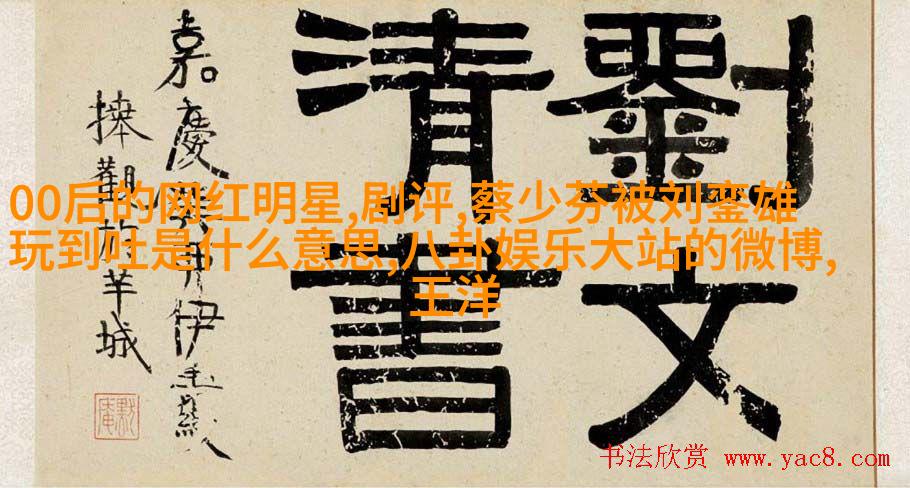 劉文
清書
嘉慶伊秉綬
捧觀於羊城
00后的网红明星,剧评,蔡少芬被刘銮雄
玩到吐是什么意思,八卦娱乐大站的微博,
王洋
书法欣赏 www.yac8.com